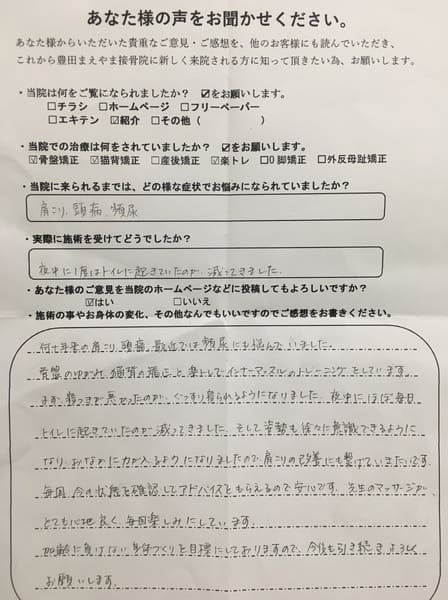 あなた様の声をお聞かせください。
あなた様からいただいた貴重なご意見・ご感想を、他のお客様にも読んでいただき、
これから豊田まえやま接骨院に新しく来院される方に知って頂きたい為、お願いします。
・当院は何をご覧になられましたか？ ☑をお願いします。
□チラシ □ホームページ □フリーペーパー
□エキテン ☑紹介 □その他（ ）
・当院での治療は何をされていましたか？ ☑をお願いします。
☑骨盤矯正 ☑猫背矯正 □産後矯正 ☑楽トレ □O脚矯正 □外反母趾矯正
・当院に来られるまでは、どの様な症状でお悩みになられていましたか？
肩こり、頭痛、頻尿
・実際に施術を受けてどうでしたか？
夜中に1度はトイレに起きていたのが、減ってきました。
・あなた様のご意見を当院のホームページなどに投稿してもよろしいですか？
☑はい □いいえ
・施術の事やお身体の変化、その他なんでもいいですのでご感想をお書きください。
何十年来の肩こり、頭痛、最近では頻尿にも悩んでいました。
骨盤のゆがみ、猫背の矯正と楽トレでインナーマッスルのトレーニングをしています。
まず、寝つきが悪かったのが、ぐっすり寝られるようになりました。夜中にほぼ毎日
トイレに起きていたのが減ってきました。そして姿勢も徐々に意識できるように
なり、おなかに力が入るようになりましたので、肩こりの改善にも繋げていきたいです。
毎回、今の状態を確認してアドバイスをもらえるので安心です。先生のマッサージが、
とても心地良く、毎回楽しみにしています。
加齢に負けない身体づくりを目標にしておりますので、今後も引き続きよろしく
お願いします。